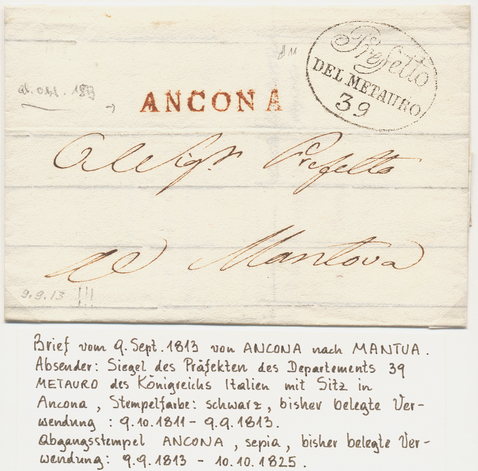 Prefetto
DEL METAURO
39
ANCONA
Al Sigr. Prefetto
di Mantova
9.9.13 !!!
Brief vom 9. Sept. 1813 von ANCONA nach MANTUA.
Absender: Siegel des Präfekten des Departements 39
METAURO des Königreichs Italien mit Sitz in
Ancona, Stempelfarbe: schwarz, bisher belegte Ver-
wendung: 9.10.1811 - 9.9.1813.
Abgangsstempel ANCONA, sepia, bisher belegte Ver-
wendung: 9.9.1813 - 10.10.1825.